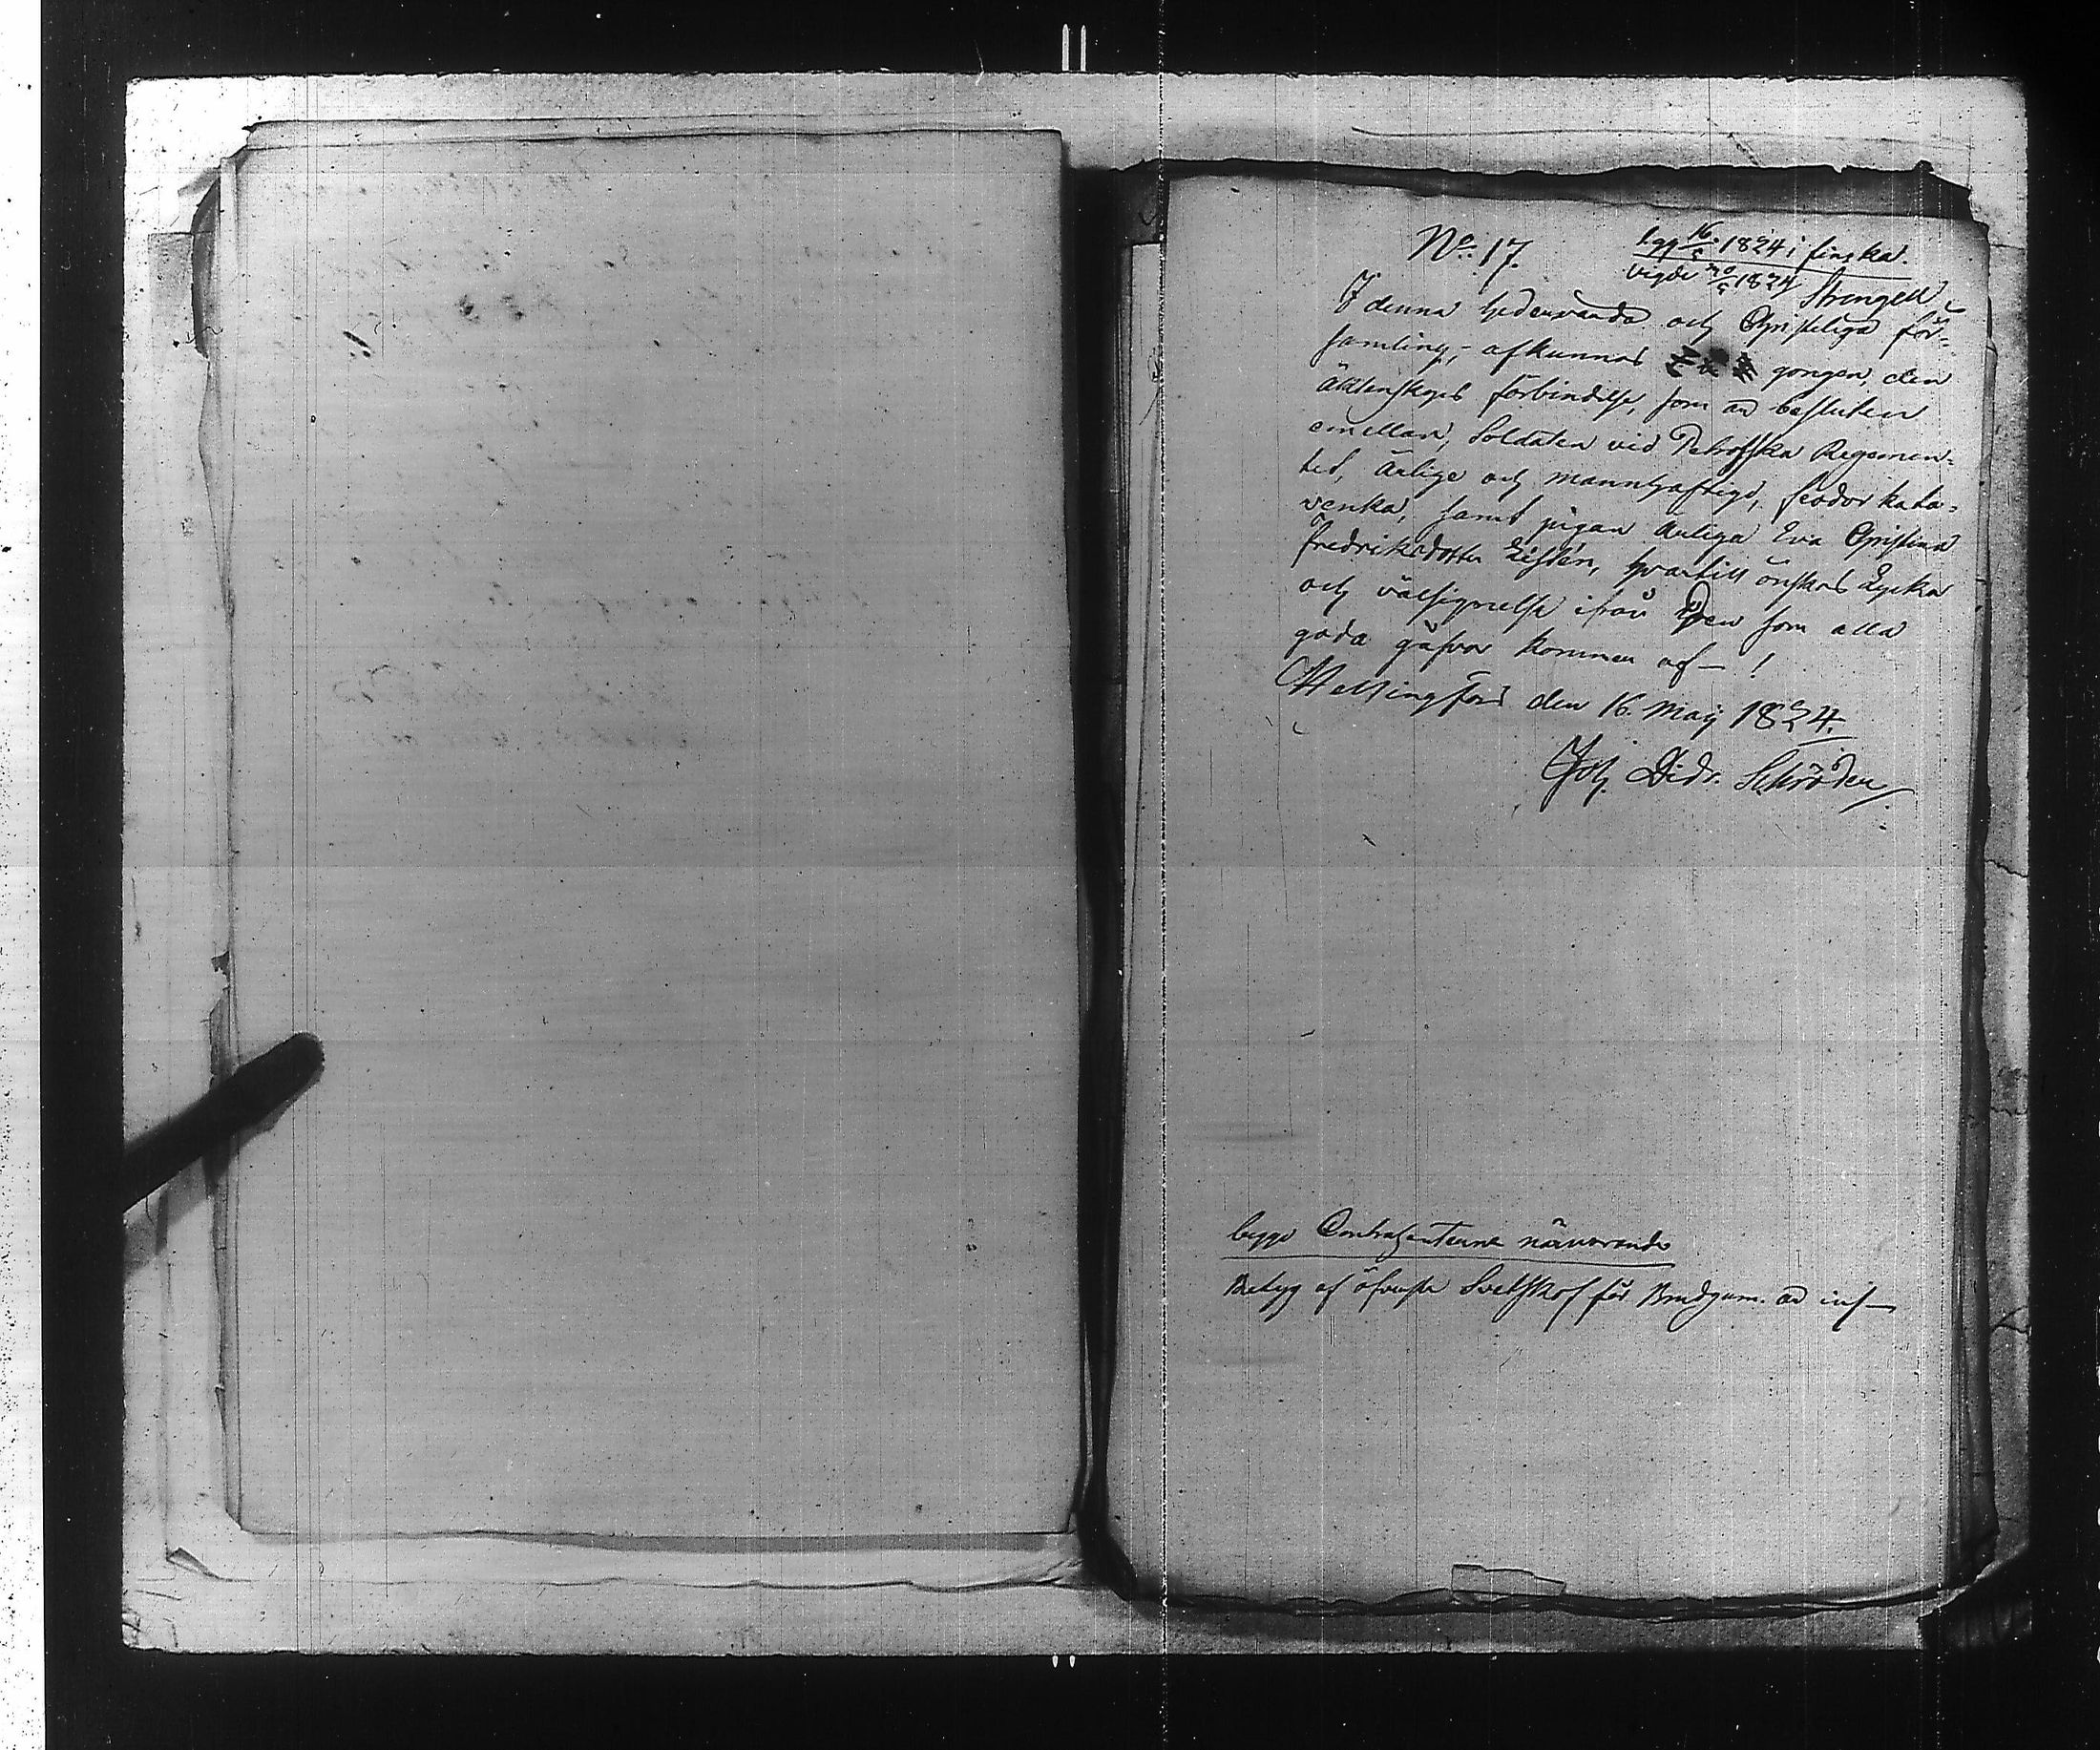 No 17.
lyst 16/5 1824 i finska.
vigde 20/5 1824 Strengell
I denna hedervärda och Christeliga för=
samling, afkunnas gongen, den
äktenskaps förbindelse, som är besluten
emellan, Soldaten vid Petrofska Regemen=
tet, ärlige och manhaftige, feodor kata=
venka, samt pigan ärliga Eva Christina
fredriksdotter Listén, hvartill önskas Lycka
och välsignelse ifrån Den som alla
goda gåfvor kommer af – !
Helsingfors den 16. Maij 1824.
Joh. Didr. Schröder
begge Contrahenterna närvarande
Betyg af öfverste för Brudgum. är inf –